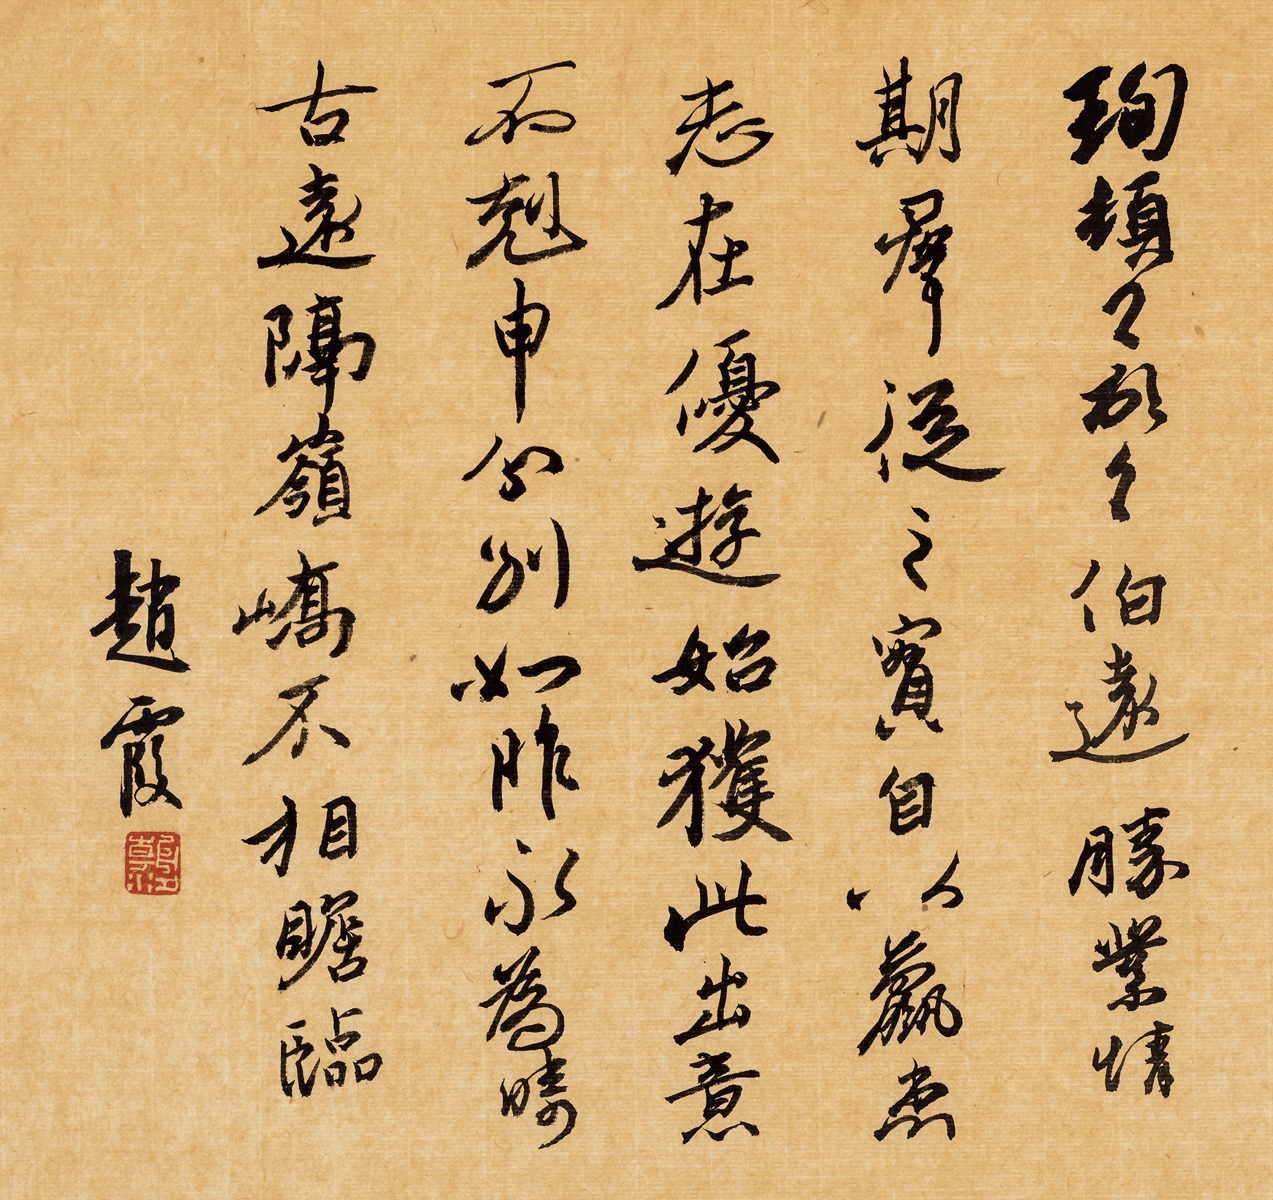 珣頓首頓首伯遠勝業情
期羣從之寶自以羸患
志在優遊始獲此出意
不剋申分別如昨永為疇
古遠隔嶺嶠不相瞻臨
趙霞